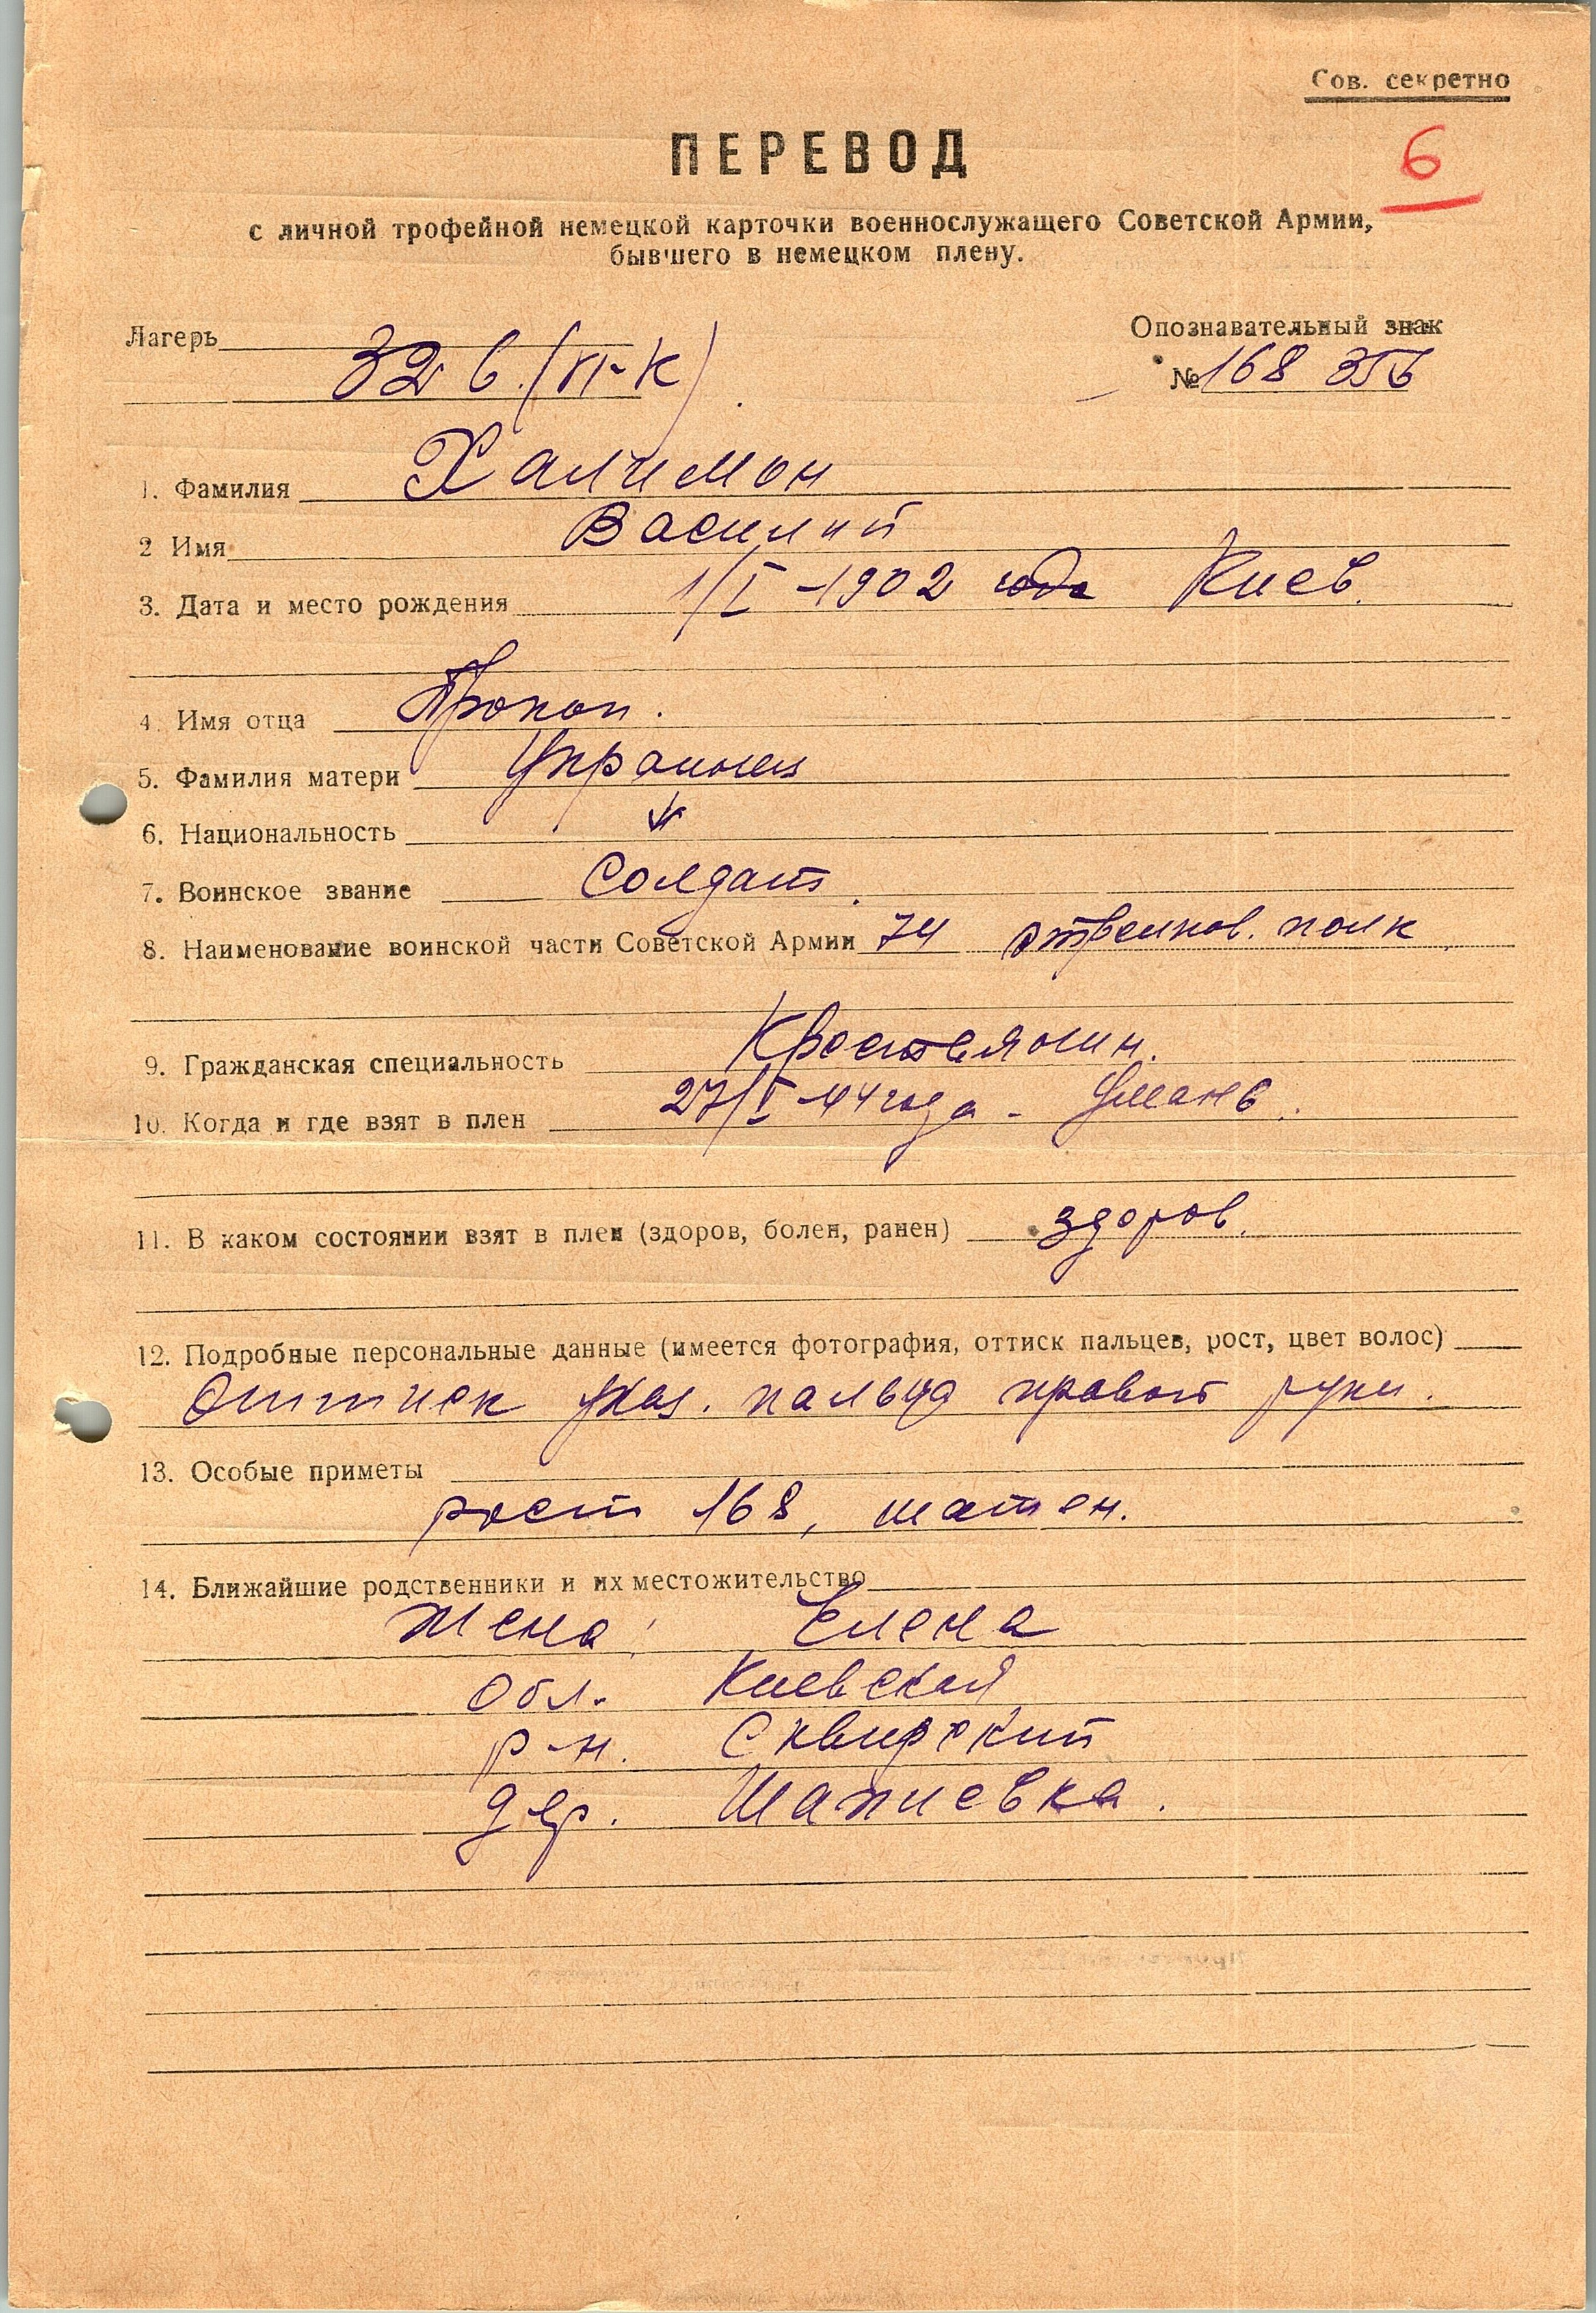 Сов. секретно
ПЕРЕВОД
6
с личной трофейной немецкой карточки военнослужащего Советской Армии,
бывшего в немецком плену.
Лагерь
Опознавательный знак
326 (VI-К)
№ 168 356
1. Фамилия Халимон
2 Имя Василий
3. Дата и место рождения 1/I-1902 года Киев.
4. Имя отца Прокоп.
5. Фамилия матери Украинец
6. Национальность
7. Воинское звание Солдат.
8. Наименование воинской части Советской Армии 74 стрелков. полк
9. Гражданская специальность Крестьянин.
10. Когда и где взят в плен 27/I-44 года - Умань.
11. В каком состоянии взят в плен (здоров, болен, ранен) здоров.
12. Подробные персональные данные (имеется фотография, оттиск пальцев, рост, цвет волос)
Оттиск указ. пальца правой руки.
13. Особые приметы
рост 168, шатен.
14. Ближайшие родственники и их местожительство
Жена: Елена
обл. Киевская
р-н. Сквирский
дер. Шапиевка.